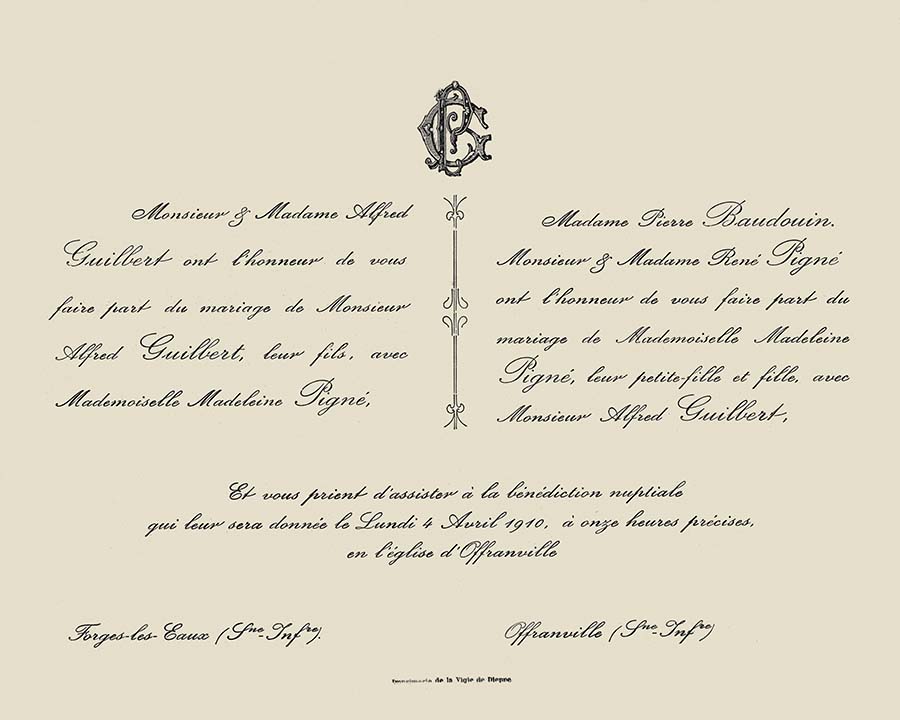 Monsieur & Madame Alfred
Guilbert ont l'honneur de vous
faire part du mariage de Monsieur
Alfred Guilbert, leur fils, avec
Mademoiselle Madeleine Pigné,
Madame Pierre Baudouin.
Monsieur & Madame René Pigné
ont l'honneur de vous faire part du
mariage de Mademoiselle Madeleine
Pigné, leur petite-fille et fille, avec
Monsieur Alfred Guilbert,
Et vous prient d'assister à la bénédiction nuptiale
qui leur sera donnée le Lundi 4 Avril 1910, à onze heures précises,
en l'église d'Offranville
Forges-les-Eaux (Sne-Infre).
Offranville (Sne-Infre)
Imprimerie de la Vigie de Dieppe